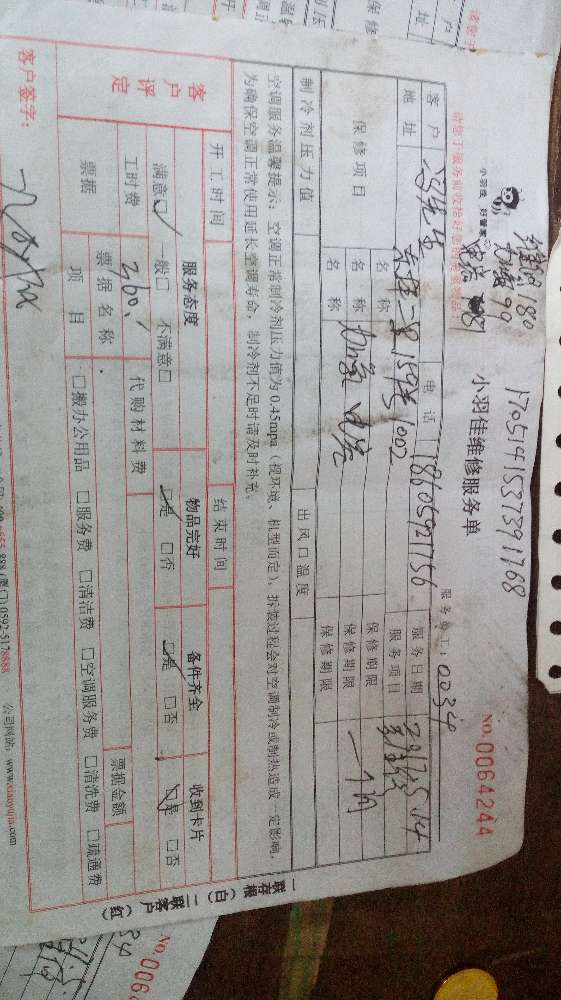 1705141537391768
180
99
小羽佳 好管家
小羽佳维修服务单
NO.0064244
请您于服务前收拾好您的贵重物品!
服务员工: 0034
客户
电话 18605921756
服务日期 2017.5.14
地址 1002
服务项目
保修项目
名称
保修期限
名称 加氟
保修期限 一个月
名称
保修期限
制冷剂压力值
出风口温度
空调服务温馨提示: 空调正常制冷剂压力值为0.45mpa (视环境、机型而定), 拆装过程会对空调制冷或制热造成一定影响,
为确保空调正常使用延长空调寿命, 制冷剂不足时请及时补充。
开工时间
结束时间
客户评定
服务态度
物品完好
备件齐全
收到卡片
满意☑ 一般□ 不满意□
☑是 □否
☑是 □否
☑是 □否
工时费 360.
代购材料费
票据
票据名称
票据金额
项目
□搬办公用品 □服务费 □清洁费 □空调服务费 □清洗费 □疏通费
客户签字:
(厦门) 0592-5178888
公司网站: www.xiaoyujia.com
一联存根 (白) 二联客户 (红)
NO.006